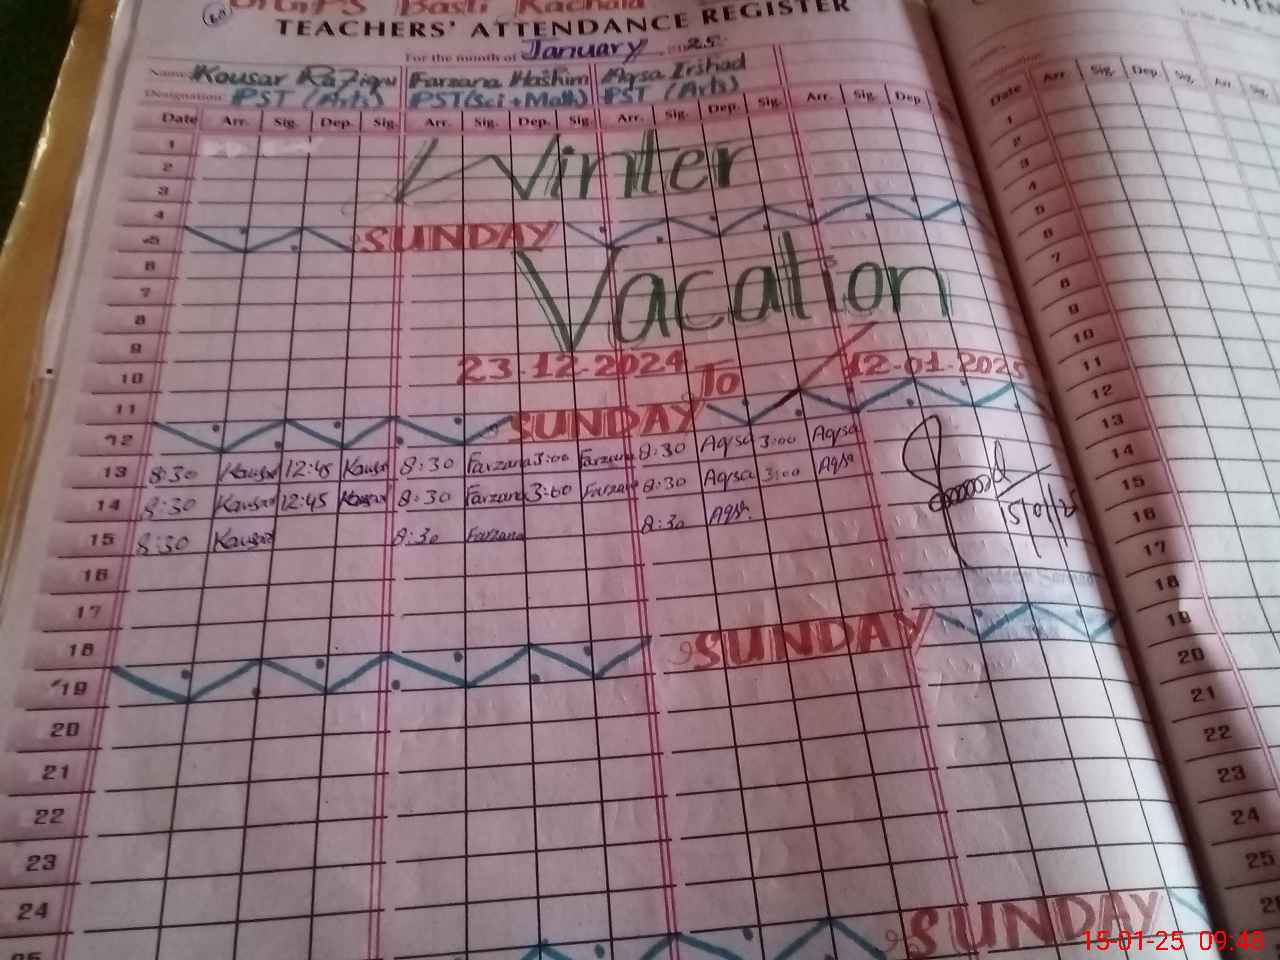 Basti Kachala
TEACHERS' ATTENDANCE REGISTER
For the month of January 2025
Name Kousar Rafique Farzana Hashim Aqsa Irshad
Designation PST (Arts) PST (Sci + Math) PST (Arts)
Date Arr. Sig. Dep. Sig. Arr. Sig. Dep. Sig. Arr. Sig. Dep. Sig. Arr. Sig. Dep.
1
2 Winter
3
4
5 SUNDAY
6
7 Vacation
8
9
10 23-12-2024 To 12-01-2025
11
12 SUNDAY
13 8:30 Kausar 12:45 Kausar 8:30 Farzana 3:00 Farzana 8:30 Aqsa 3:00 Aqsa
14 8:30 Kausar 12:45 Kausar 8:30 Farzana 3:00 Farzana 8:30 Aqsa 3:00 Aqsa
15 8:30 Kausar 8:30 Farzana 8:30 Aqsa
16
17
18
19 SUNDAY
20
21
22
23
24
SUNDAY
Date Arr. Sig. Dep. Sig. Arr. Sig.
1
2
3
4
5
6
7
8
9
10
11
12
13
14
15
16
17
18
19
20
21
22
23
24
25
15-01-25 09:48